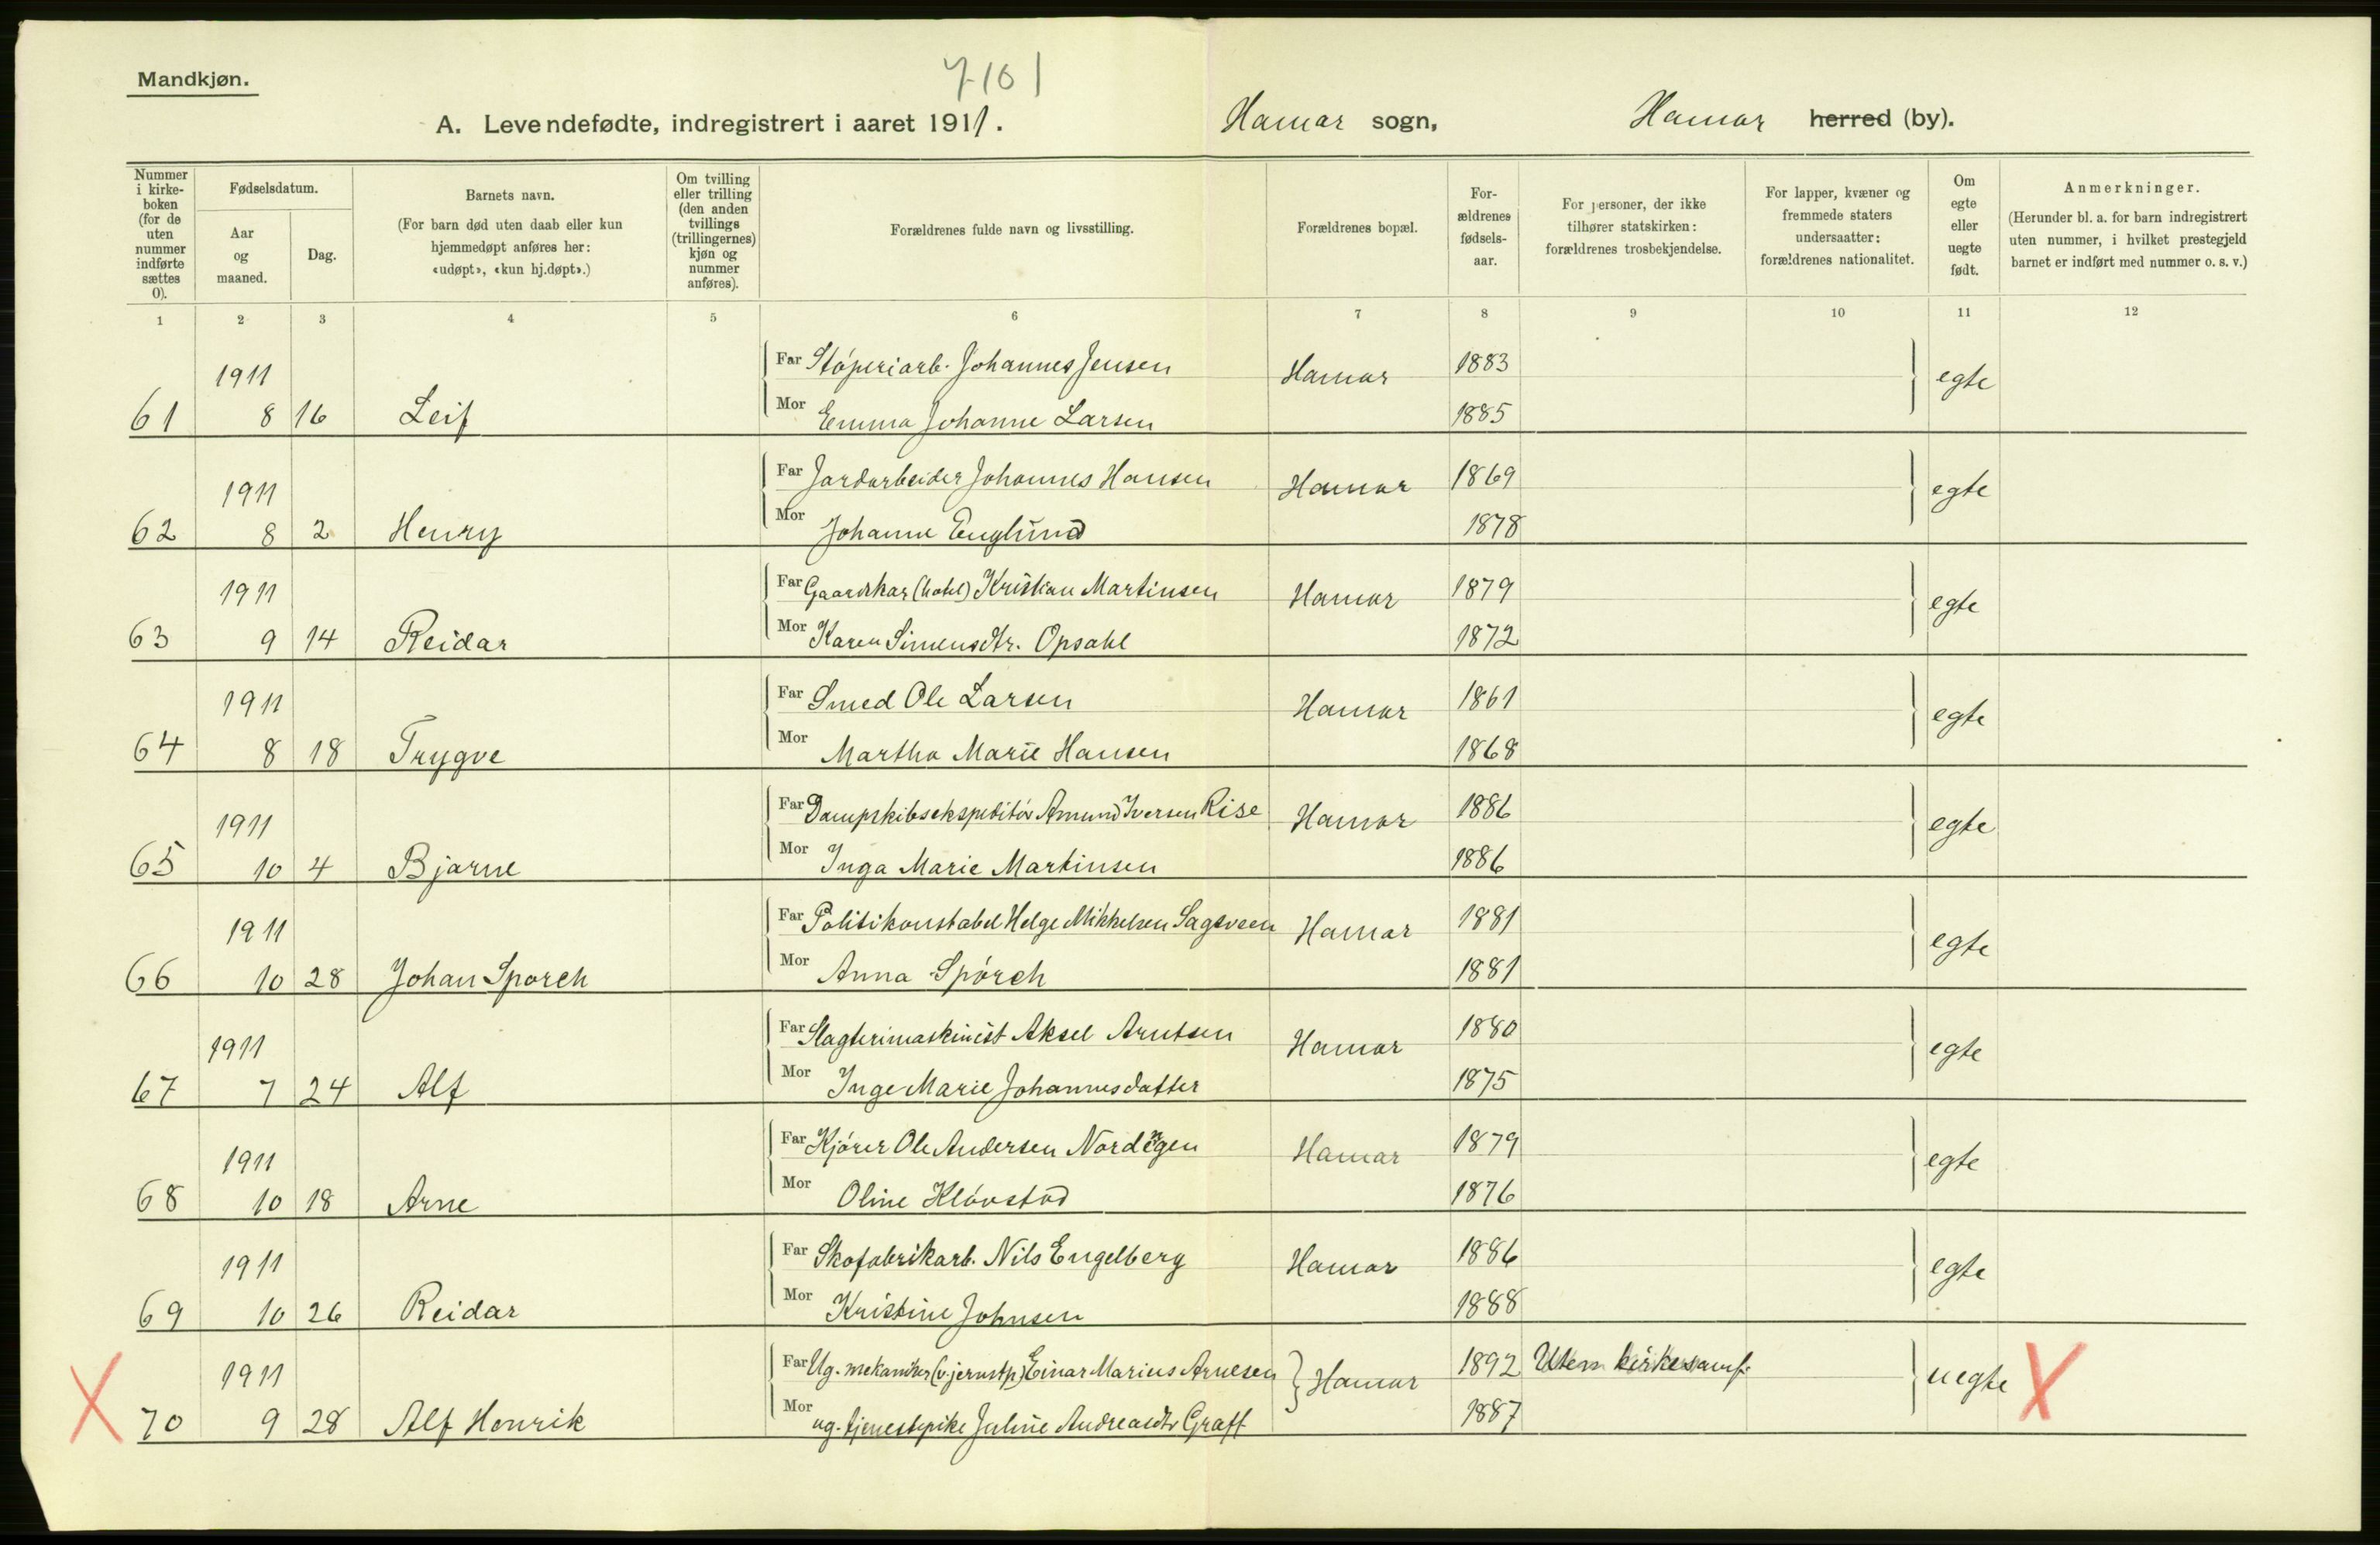 Mandkjøn.
7101
A. Levendefødte, indregistrert i aaret 1911. Hamar sogn, Hamar herred (by).
Nummer i kirke-boken (for de uten nummer indførte sættes 0).
Fødselsdatum.
Aar og maaned.
Dag.
Barnets navn.
(For barn død uten daab eller kun hjemmedøpt anføres her: «udøpt», «kun hj.døpt».)
Om tvilling eller trilling (den anden tvillings (trillingernes) kjøn og nummer anføres).
Forældrenes fulde navn og livsstilling.
Forældrenes bopæl.
For-ældrenes fødsels-aar.
For personer, der ikke tilhører statskirken: forældrenes trosbekjendelse.
For lapper, kvæner og fremmede staters undersaatter: forældrenes nationalitet.
Om egte eller uegte født.
Anmerkninger.
(Herunder bl. a. for barn indregistrert uten nummer, i hvilket prestegjeld barnet er indført med nummer o. s. v.)
1 2 3 4 5 6 7 8 9 10 11 12
1911 Far Støperiarb. Johannes Jensen Hamar 1883 egte
61 8 16 Leif Mor Emma Johanne Larsen 1885
1911 Far Jordarbeider Johannes Hansen Hamar 1869 egte
62 8 2 Henry Mor Johanne Englund 1878
1911 Far Gaardskar (hotel) Kristian Martinsen Hamar 1879 egte
63 9 14 Reidar Mor Karen Simensdtr. Opsahl 1872
1911 Far Smed Ole Larsen Hamar 1861 egte
64 8 18 Trygve Mor Martha Marie Hansen 1868
1911 Far Dampskibsekspeditør Amund Iversen Rise Hamar 1886 egte
65 10 4 Bjarne Mor Inga Marie Martinsen 1886
1911 Far Politikonstabel Helge Mikkelsen Sagsveen Hamar 1881 egte
66 10 28 Johan Sporch Mor Anna Spörch 1881
1911 Far Slagterimaskinist Aksel Arntsen Hamar 1880 egte
67 7 24 Alf Mor Inge Marie Johannesdatter 1875
1911 Far Kjører Ole Andersen Hamar 1879 egte
68 10 18 Arne Mor Oline Kløvstad 1876
1911 Far Skofabrikarb. Nils Engelberg Hamar 1886 egte
69 10 26 Reidar Mor Kristine Johnsen 1888
X 1911 Far Ug. mekaniker (v. jernstp) Einar Marius Arnesen Hamar 1892 Uten kirkesamf. uegte X
70 9 28 Alf Henrik Mor ug. tjenestepike Juline Andreasdtr Graff 1887